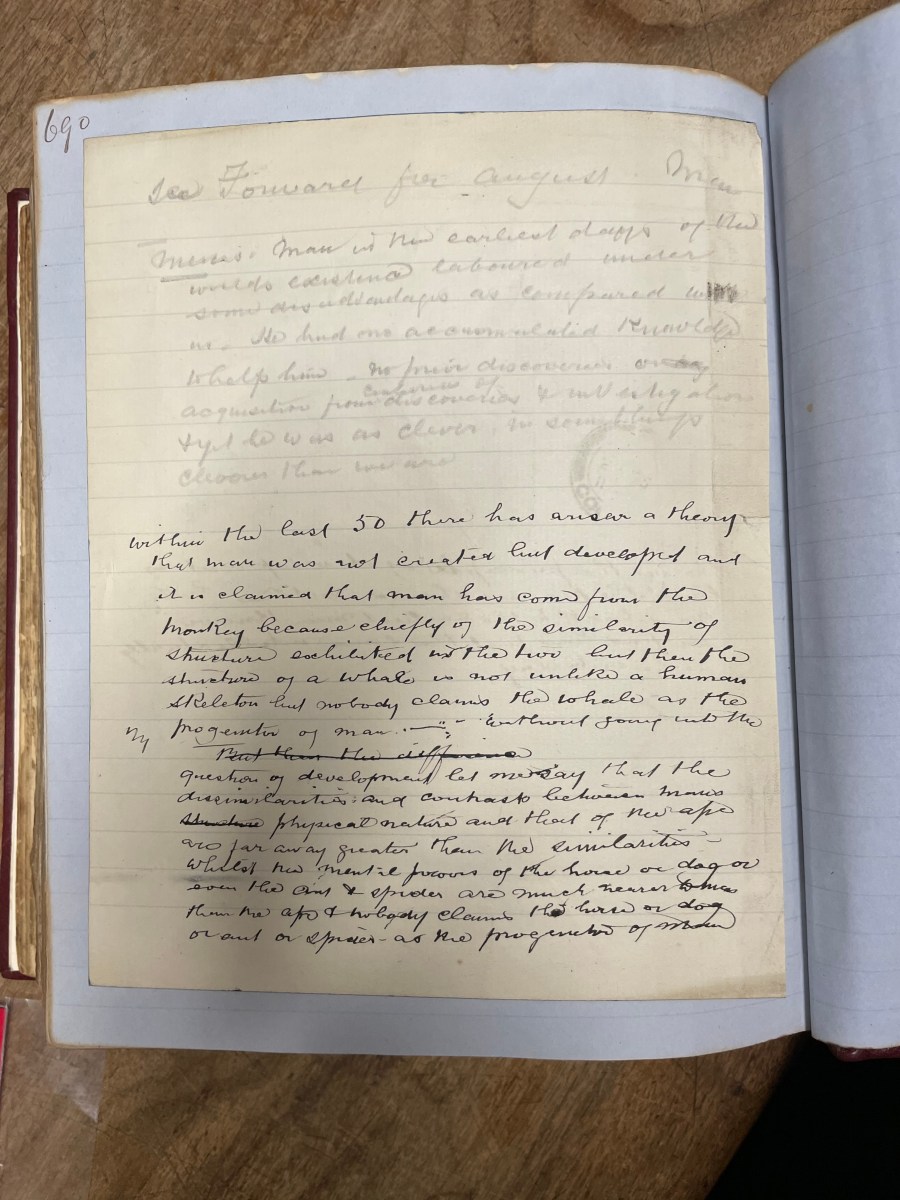 690
see Forward for August. Man
Minis. Man in the earliest days of the
worlds existence laboured under
some disadvantages as compared with
us. He had no accumulated Knowledge
to help him - no prior discoveries or
centuries of
acquisition from discoveries & investigation
& yet he was as clever in some things
cleverer than we are
within the last 50 there has arisen a theory
that man was not created but developed and
it is claimed that man has come from the
monkey because chiefly of the similarity of
structure exhibited in the two but then the
structure of a whale is not unlike a human
skeleton but nobody claims the whale as the
progenitor of man. Without going into the
But then the difference
question of development let me say that the
dissimilarities and contrasts between mans
structure physical nature and that of the ape
are far away greater than the similarities -
whilst the mental powers of the horse or dog or
even the ant & spider are much nearer to man
than the ape & nobody claims the horse or dog
or ant or spider - as the progenitor of man